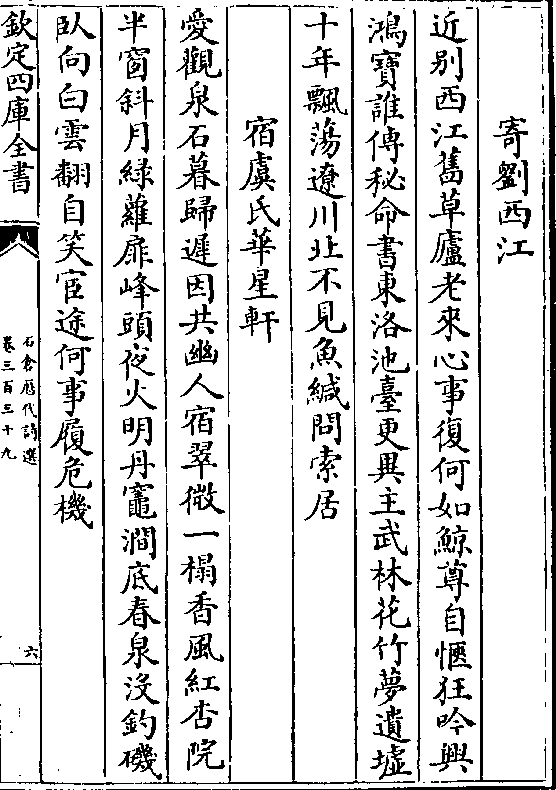 寄劉西江
近别西江舊草廬老來心事復何如鯨尊自愜狂吟興
鴻寶誰傳秘命書東洛池臺更異主武林花竹夢遺墟
十年飄蕩遼川北不見魚緘問索居
宿虞氏華星軒
愛觀泉石暮歸遲因共幽人宿翠微一榻香風紅杏院
半窗斜月綠蘿扉峰頭夜火明丹竈澗底春泉没釣磯
臥向白雲翻自笑宦途何事履危機
欽定四庫全書
石倉歴代詩選
卷三百三十九
六